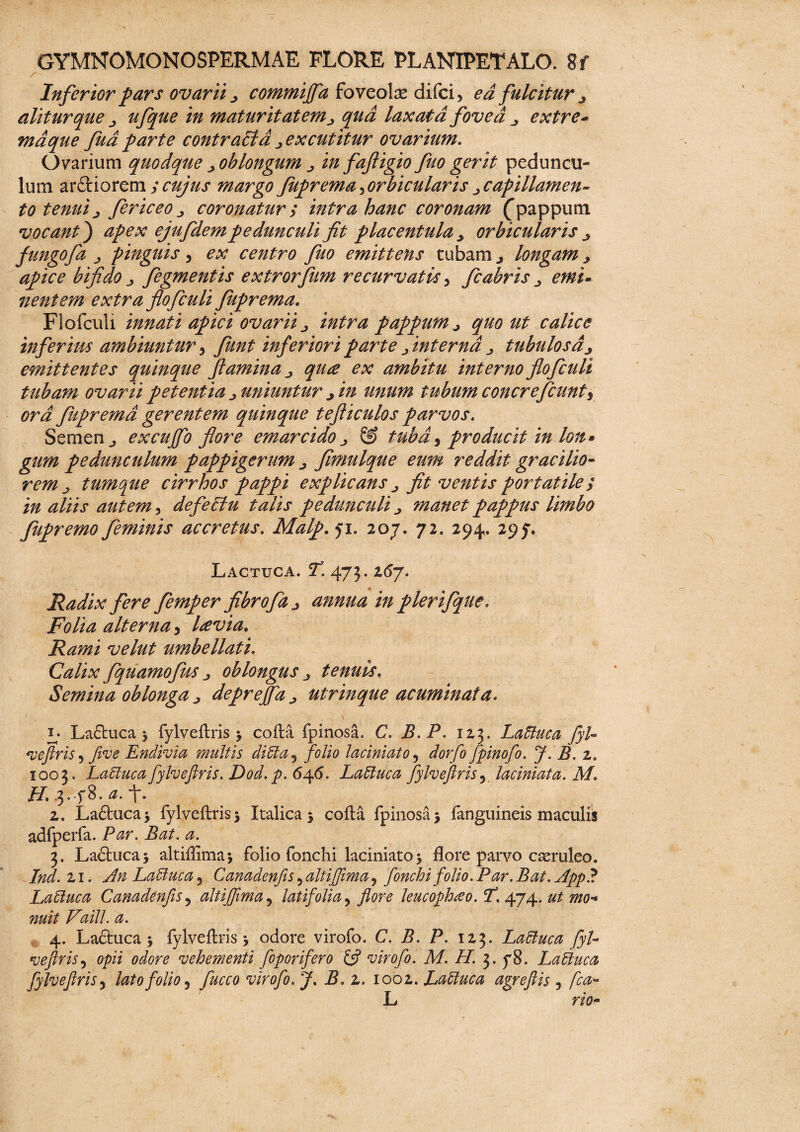 GYMNOMONOSPERMAE FLORE PLANIPETALO. 8f
Inferior pars ovarii, commiſſa foveolæ diſci, eâ fulcitur,
aliturque, uſque in maturitatem, quâ laxatâ foveâ, extre-
mâque ſuâ parte contractâ, excutitur ovarium.
Ovarium quodque, oblongum, in faſtigio ſuo gerit peduncu-
lum arctiorem; cujus margo ſuprema, orbicularis, capillamen-
to tenui, ſericeo, coronatur; intra hanc coronam (pappum
vocant) apex ejuſdem pedunculi fit placentula, orbicularis,
fungoſa, pinguis, ex centro ſuo emittens tubam, longam,
apice bifido, ſegmentis extrorſum recurvatis, ſcabris, emi-
nentem extra floſculi ſuprema.
Floſculi innati apici ovarii, intra pappum, quo ut calice
inferius ambiuntur, ſunt inferiori parte, internâ, tubulosâ,
emittentes quinque ſtamina, quæ ex ambitu interno floſculi
tubam ovarii petentia, uniuntur, in unum tubum concreſcunt,
orâ ſupremâ gerentem quinque teſticulos parvos.
Semen, excuſſo flore emarcido, & tubâ, producit in lon-
gum pedunculum pappigerum, ſimulque eum reddit gracilio-
rem, tumque cirrhos pappi explicans, fit ventis portatile;
in aliis autem, defectu talis pedunculi, manet pappus limbo
ſupremo ſeminis accretus. Malp. 51. 207. 72. 294. 295.
LACTUCA. T. 473. 267.
Radix fere ſemper fibroſa, annua in pleriſque.
Folia alterna, lævia.
Rami velut umbellati.
Calix ſquamoſus, oblongus, tenuis.
Semina oblonga, depreſſa, utrinque acuminata.
1. Lactuca; ſylveſtris; coſtâ ſpinosâ. C. B. P. 123. Lactuca ſyl-
veſtris, ſive Endivia multis dicta, folio laciniato, dorſo ſpinoſo. J. B. 2.
1003. Lactuca ſylveſtris. Dod. p. 646. Lactuca ſylveſtris, laciniata. M.
H. 3. f8. a. †.
2. Lactuca; ſylveſtris; Italica; coſtâ ſpinosâ; ſanguineis maculis
adſperſa. Par. Bat. a.
3. Lactuca; altiſſima; folio ſonchi laciniato; flore parvo cæruleo.
Ind. 21. An Lactuca, Canadenſis, altiſſima, ſonchi folio. Par. Bat. App.?
Lactuca Canadenſis, altiſſima, latifolia, flore leucophæo. T. 474. ut mo-
nuit Vaill. a.
4. Lactuca; ſylveſtris; odore viroſo. C. B. P. 123. Lactuca ſyl-
veſtris, opii odore vehementi ſoporifero & viroſo. M. H. 3. f8. Lactuca
ſylveſtris, lato folio, ſucco viroſo. J. B. 2. 1002. Lactuca agreſtis, ſca-
L rio-